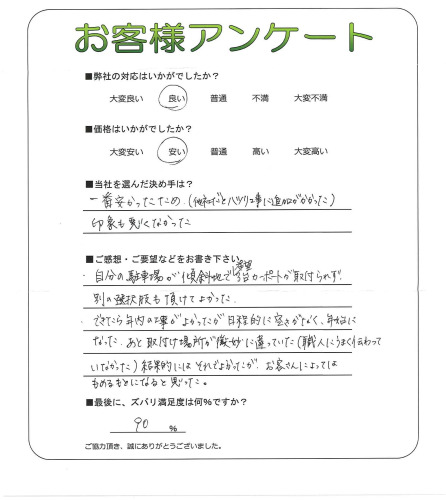 お客様アンケート
■弊社の対応はいかがでしたか?
大変良い 良い 普通 不満 大変不満
■価格はいかがでしたか?
大変安い 安い 普通 高い 大変高い
■当社を選んだ決め手は?
一番安かったため.(他社だとハツリ工事に追加がかかった)
印象も悪くなかった
■ご感想・ご要望などをお書き下さい
・自分の駐車場が傾斜地で希望カーポートが取付られず.
別の選択肢も頂けてよかった.
・できたら年内の工事がよかったが日程的に空きがなく、年始に
なった. あと取付け場所が微妙に違っていた(職人にうまく伝わって
いなかった)結果的にはそれでよかったが. お客さんによっては
もめるもとになると思った。
■最後に、ズバリ満足度は何%ですか?
90 %
ご協力頂き、誠にありがとうございました。